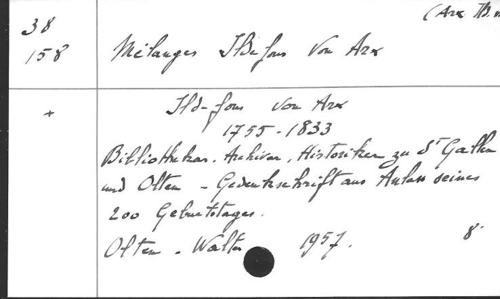 38 (Arx
158 Mélanges Ildefons von Arx
+ Ild-fons von Arx
1755-1833
Bibliothekar, Archivar, Historiker zu St Gallen
und Olten - Gedenkschrift aus Anlass seines
200 Geburtstages.
Olten - Walter 1957. 8°